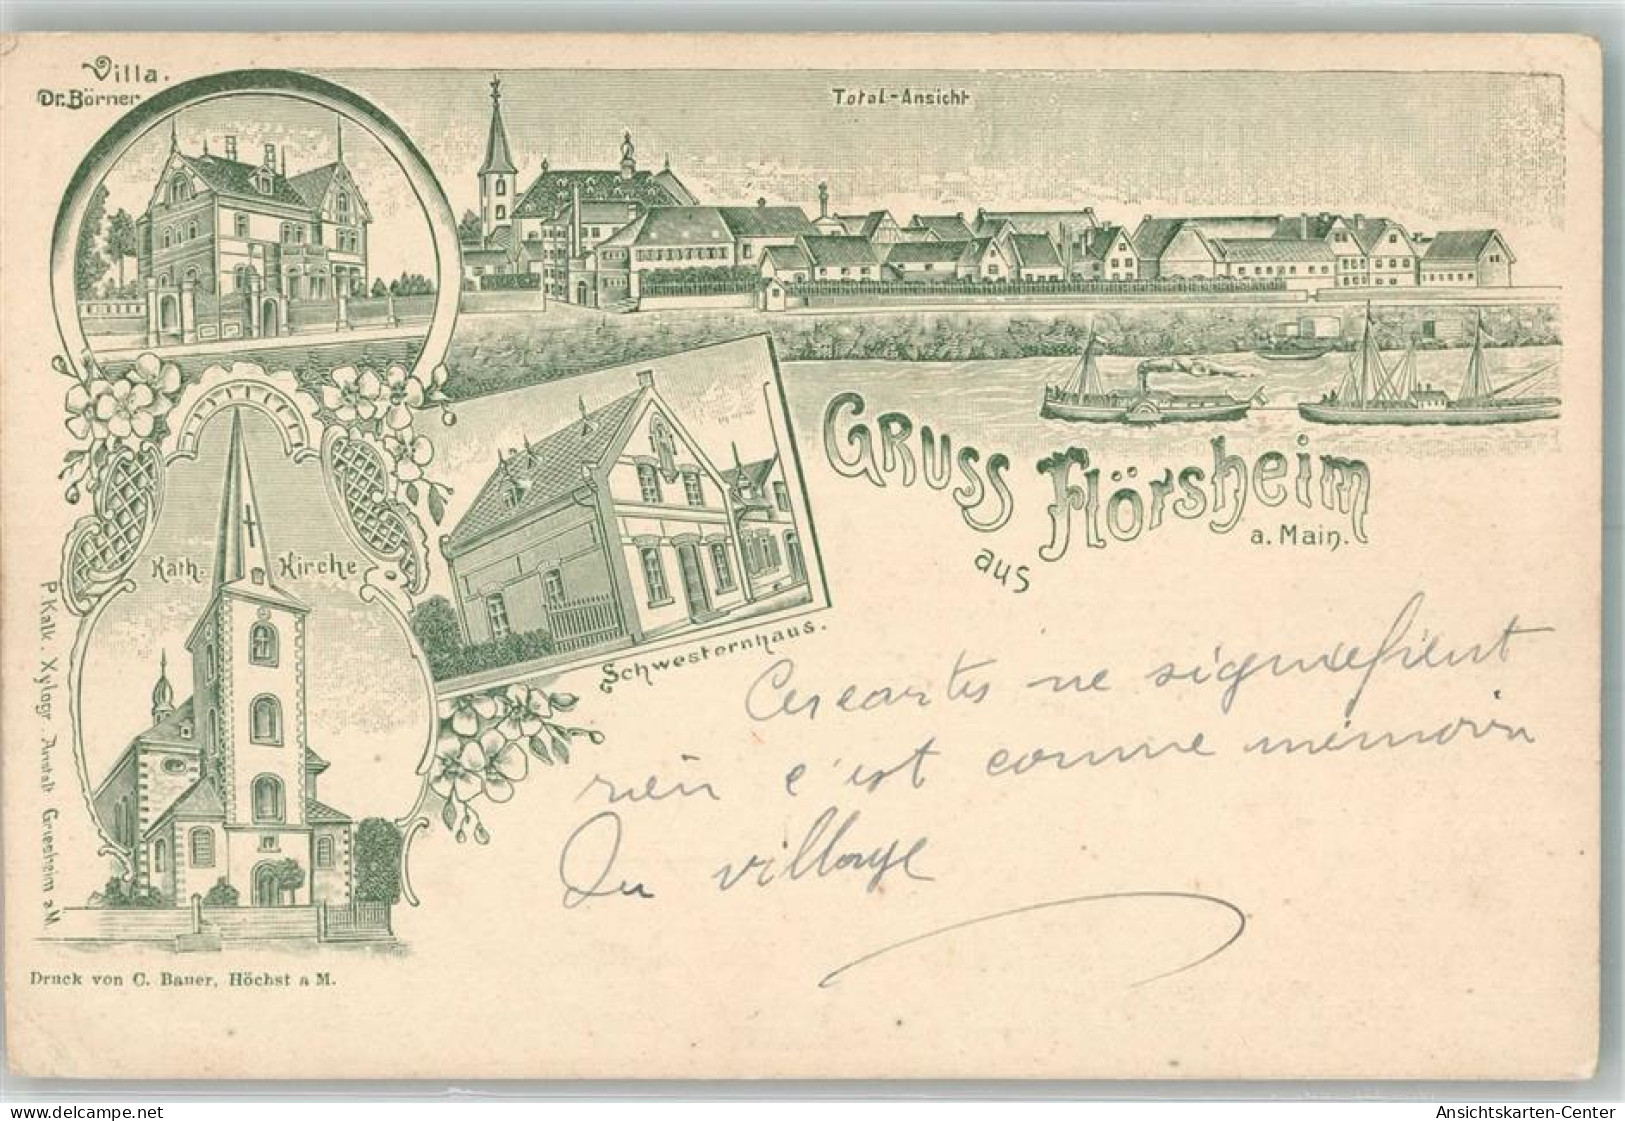 Villa.
Dr. Börner
Total-Ansicht
GRUSS
aus
Flörsheim
a. Main.
Kath. Kirche
Schwesternhaus.
P. Kalk. Xylogr. Anstalt Griesheim a.M.
Ces cartes ne signifient
rien c'est comme mémoire
Du village
Druck von C. Bauer, Höchst a M.
oldthing.de
Ansichtskarten-Center